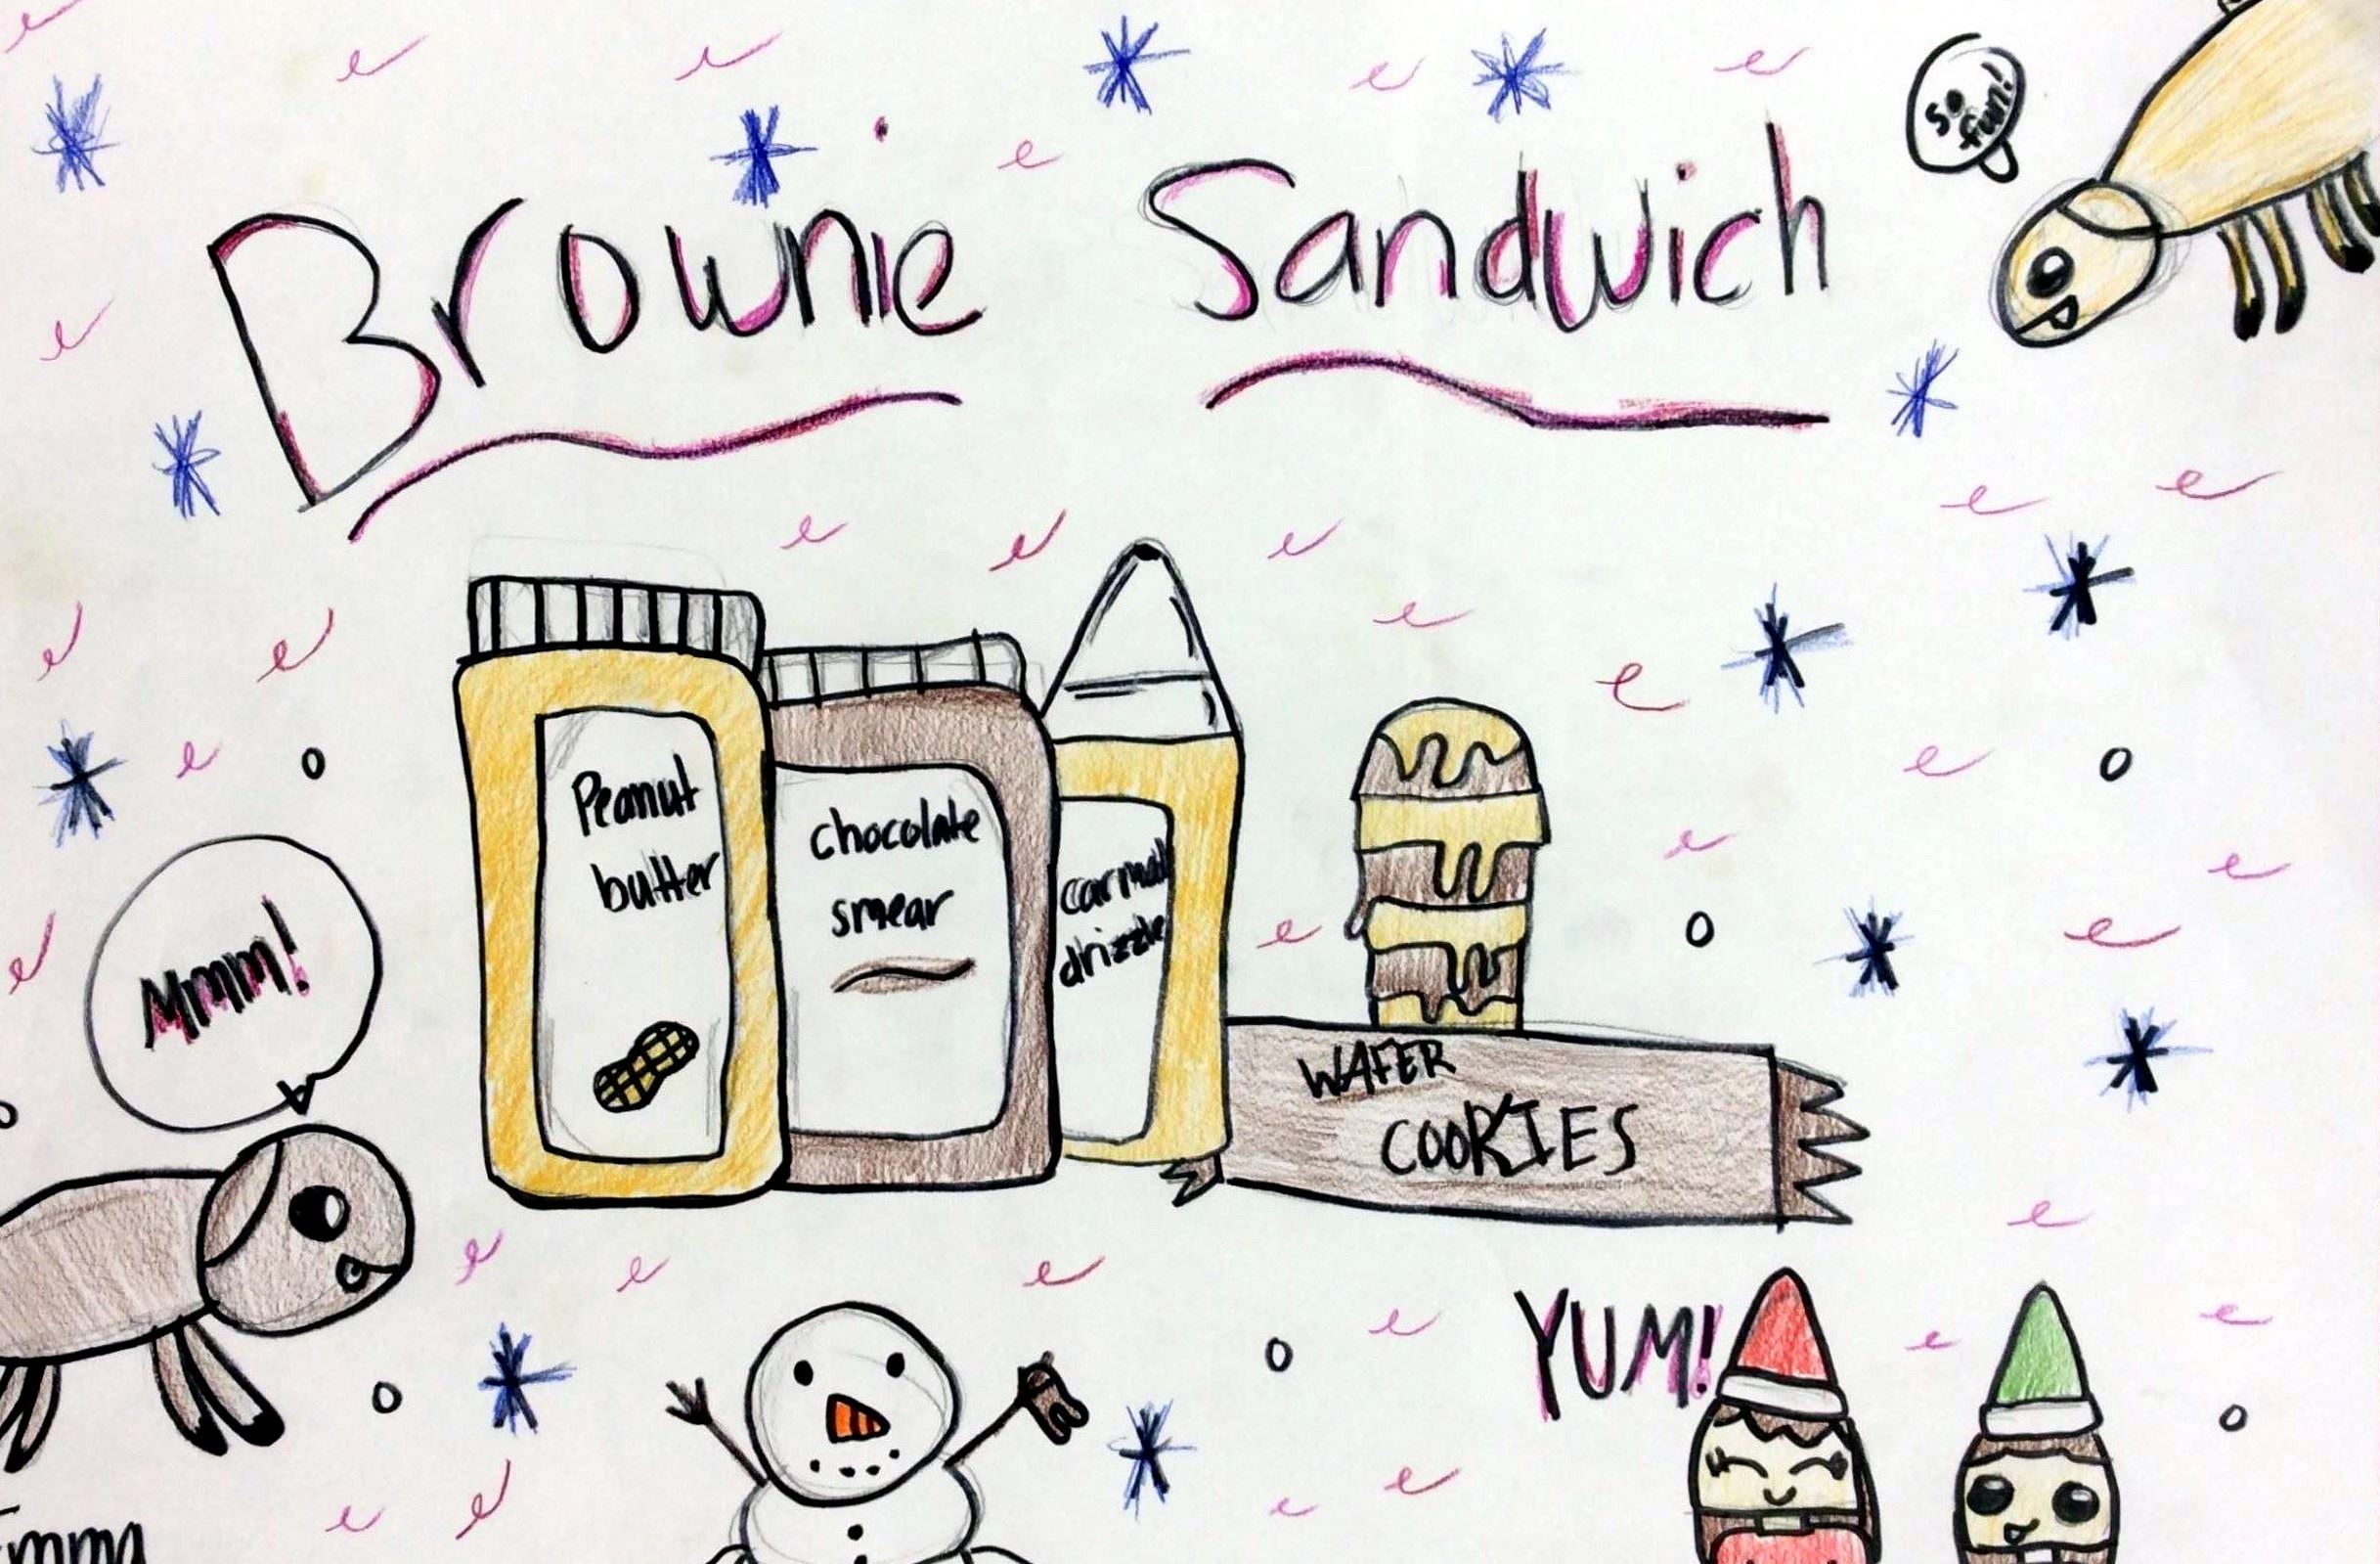 so
fun!
Brownie Sandwich
Peanut
butter
chocolate
smear
carmal
drizzle
Mmm!
WAFER
COOKIES
YUM!
Emma